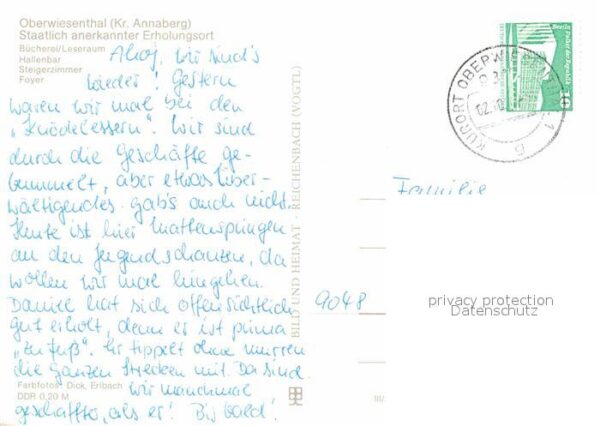 Oberwiesenthal (Kr. Annaberg)
Staatlich anerkannter Erholungsort
Bücherei/Leseraum
Hallenbar
Steigerzimmer
Foyer
Ahoj, wir sind's
wieder! Gestern
waren wir mal bei den
„Knödelessern". Wir sind
durch die Geschäfte ge-
bummelt, aber etwas Über-
wältigendes gab's auch nicht.
Heute ist hier Mattenspringen
an den Jugendschanzen, da
wollen wir mal hingehen.
Daniel hat sich offensichtlich
gut erholt, denn er ist prima
„zu Fuß". Er tippelt ohne murren
die ganzen Strecken mit. Da sind
wir manchmal
geschaffter, als er! Bis bald!
Farbfotos: Dick, Erlbach
DDR 0,20 M
BILD UND HEIMAT · REICHENBACH (VOGTL)
III/
Berlin, Palast der Republik
10
DDR
KURORT OBERWIESENTHAL 1
02.10
b
Familie
9048
privacy protection
Datenschutz